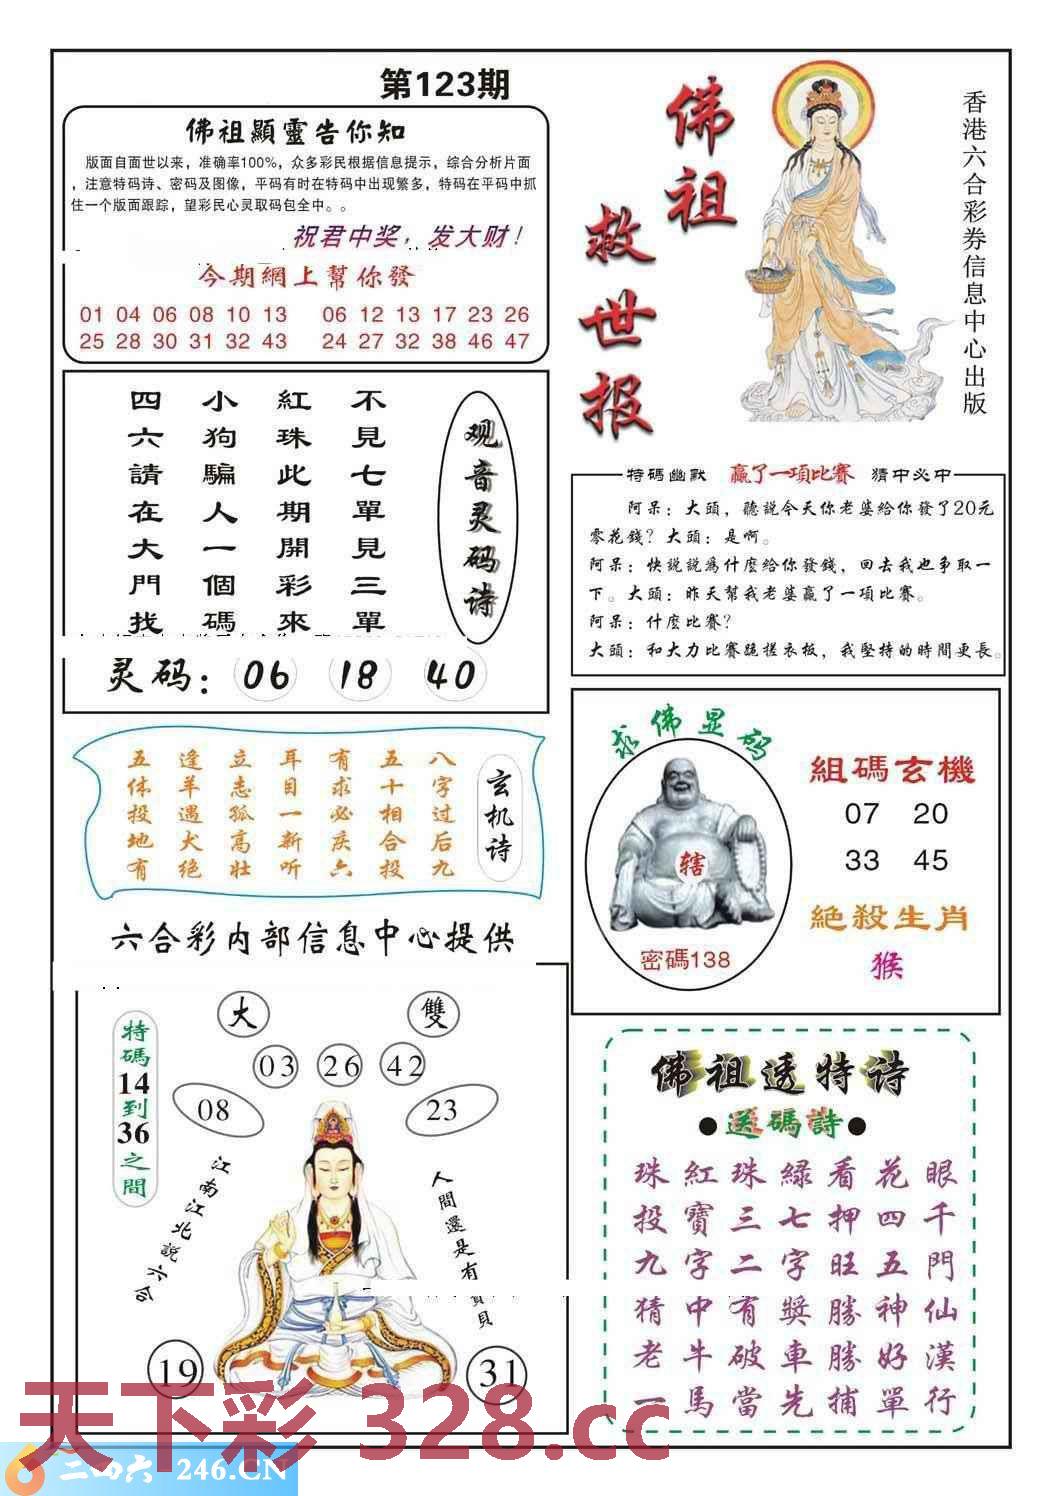 第123期
佛祖顯靈告你知
版面自面世以来，准确率100%，众多彩民根据信息提示，综合分析片面
，注意特码诗、密码及图像，平码有时在特码中出现繁多，特码在平码中抓
住一个版面跟踪，望彩民心灵取码包全中。。
祝君中奖，发大财！
今期網上幫你發
01 04 06 08 10 13 06 12 13 17 23 26
25 28 30 31 32 43 24 27 32 38 46 47
佛祖
救世报
香港六合彩券信息中心出版
观音灵码诗
不見七單見三單
紅珠此期開彩來
小狗騙人一個碼
四六請在大門找
灵码：06 18 40
特碼幽默 赢了一項比賽 猜中必中
阿呆：大頭，聽說今天你老婆给你發了20元
零花錢？大頭：是啊。
阿呆：快說說爲什麼给你發錢，回去我也争取一
下。大頭：昨天幫我老婆赢了一項比賽。
阿呆：什麼比賽？
大頭：和大力比賽跪搓衣板，我堅持的時間更長。
玄机诗
八字过后九
五十相合投
有求必疾六
耳目一新听
立志孤高壮
逢羊遇犬绝
五体投地有
求佛显码
辖
密碼138
組碼玄機
07 20
33 45
絕殺生肖
猴
六合彩内部信息中心提供
特碼14到36之間
大 雙
03 26 42
08 23
江南江北説六合
人間還是有寶貝
19 31
佛祖透特诗
●送碼詩●
眼千門仙漢行
花四五神好單
看押旺勝勝捕
緑七字獎車先
珠三二有破當
紅寶字中牛馬
珠投九猜老一
天下彩 328.cc
二四六 246.CN